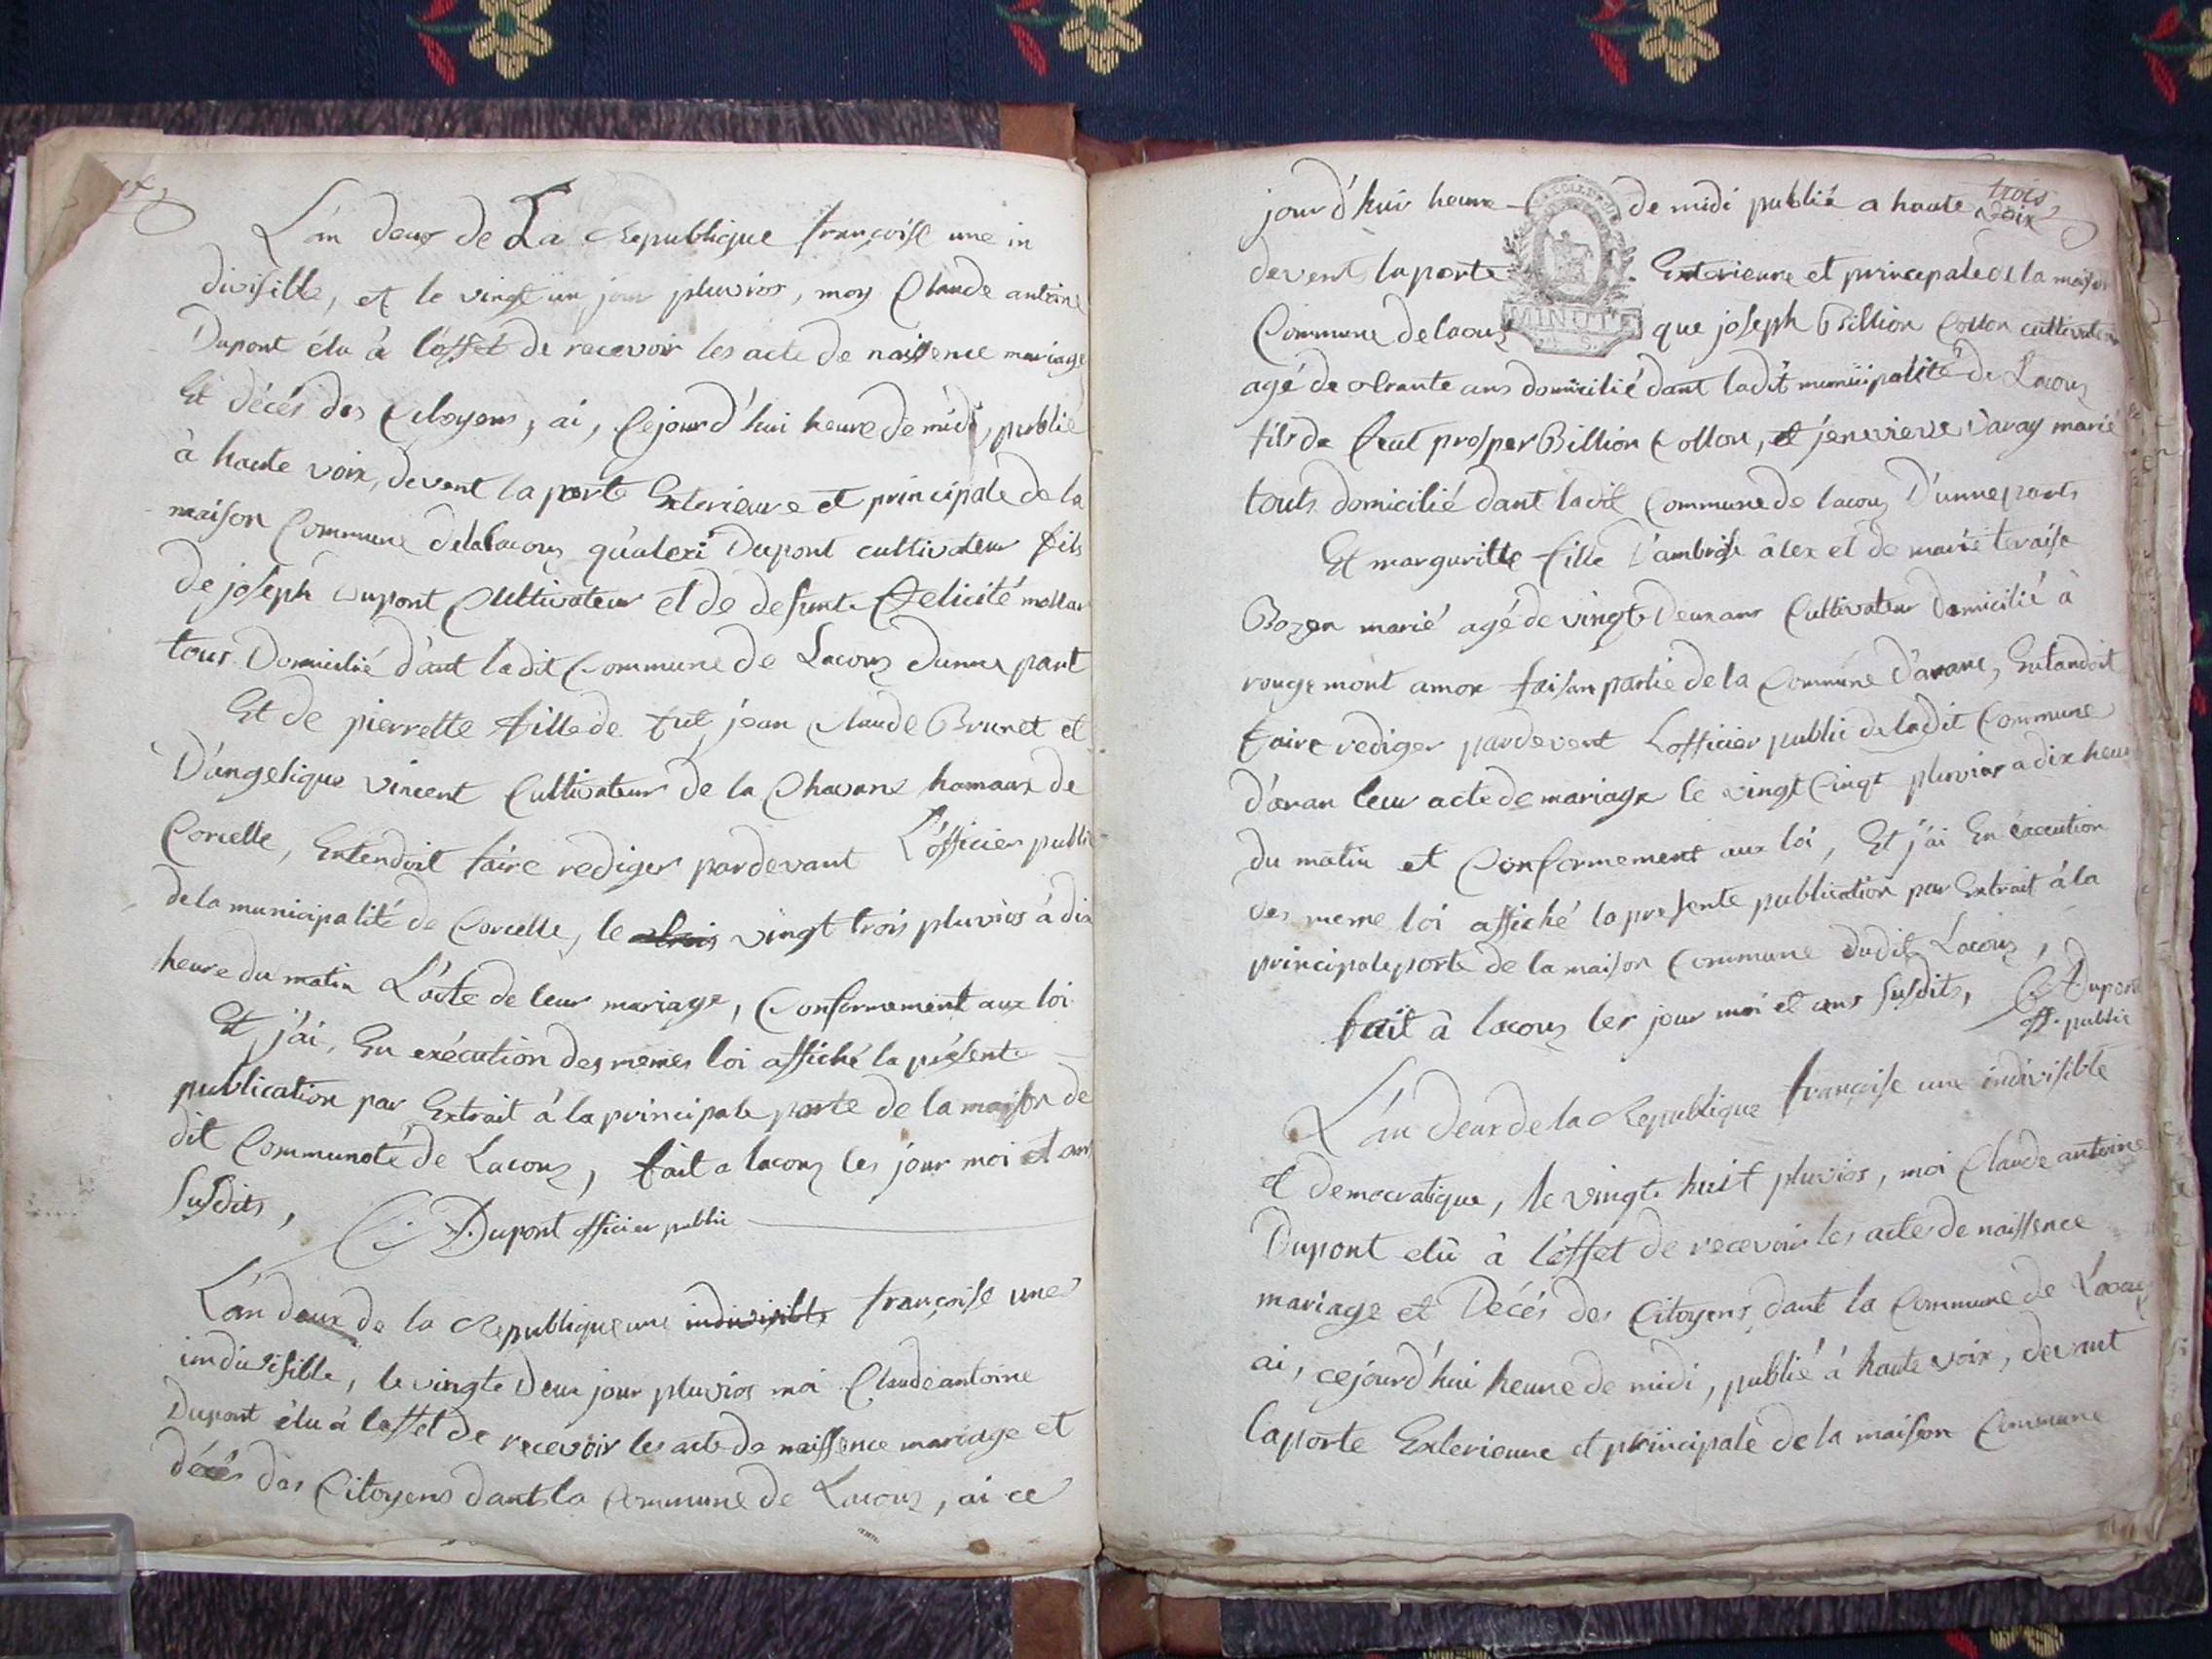 L'an deux de La Republique françoise une in
divisible, et le vingt un jour pluvios, moy Claude antoine
Dupont élu à l'effet de recevoir les acte de naissence mariage
Et décés des Citoyens, ai, Cejourd'hui heure de midi, publié
à haute voix, devent la porte Exterieure et principale de la
maison Commune de Lacoux qu'alexi Dupont cultivateur fils
de joseph Dupont Cultivateur et de defunte Felicité mollar
tous Domicilié d'ant ladit Commune de Lacoux dunne part
Et de pierrette fille de fut jean Claude Brunet et
D'angelique vincent Cultivateur de la Chavane hamaux de
Corcelle, Entendoit faire rediger pardevant L'officier public
de la municipalité de Corcelle, le trois vingt trois pluvios à dix
heure du matin L'acte de leur mariage, Conformement aux loi
Et j'ai, En exécution des memes loi affiché la présente
publication par Extrait à la principale porte de la maison de
dit Communoté de Lacoux, fait a lacoux les jour moi et ans
susdits, C. A. Dupont officier public
L'an deux de la Republique une indivisible françoise une
indivisible, le vingte Deux jour pluvios moi Claude antoine
Dupont élu à l'effet de recevoir les acte de naissence mariage et
décés des Citoyens dant la Commune de Lacoux, ai ce
trois
jourd'hui heure de midi publié a haute voix
devent la porte Exterieure et principale de la maison
Commune de lacoux que joseph Billion Collon cultivateur
MINUTE
agé de trante ans domicilié dant ladit municipalité de Lacoux
fils de feut prosper Billion Collon, et jenevieve Savay marié
touts domicilié dant ladit Commune de lacoux D'unne parts
Et margueritte fille d'ambroise âlex et de marie teraise
Bozon marié agé de vingt Deux ans Cultivateur Domicilié à
rougemont amox faisan partie de la Commune d'arane, Entandoit
faire rediger pardevent L'officier public de ladit Commune
d'aran leur acte de mariage le vingt Cinqt pluvios a dix heur
du matin et Conformement aux loi, Et j'ai En éxecution
des meme loi affiché la presente publication par Extrait à la
principale porte de la maison Commune dudit Lacoux,
fait à lacoux les jour moi et ans susdits, C A Dupont
off. public
L'an Deux de la Republique françoise une indivisible
et democratique, le vingte huit pluvios, moi Claude antoine
Dupont elû à l'effet de recevoir les acte de naissence
mariage et Décés des Citoyens dant la Commune de Lacoux
ai, cejourd'hui heure de midi, publié à haute voix, devant
la porte Exterieure et principale de la maison Commune